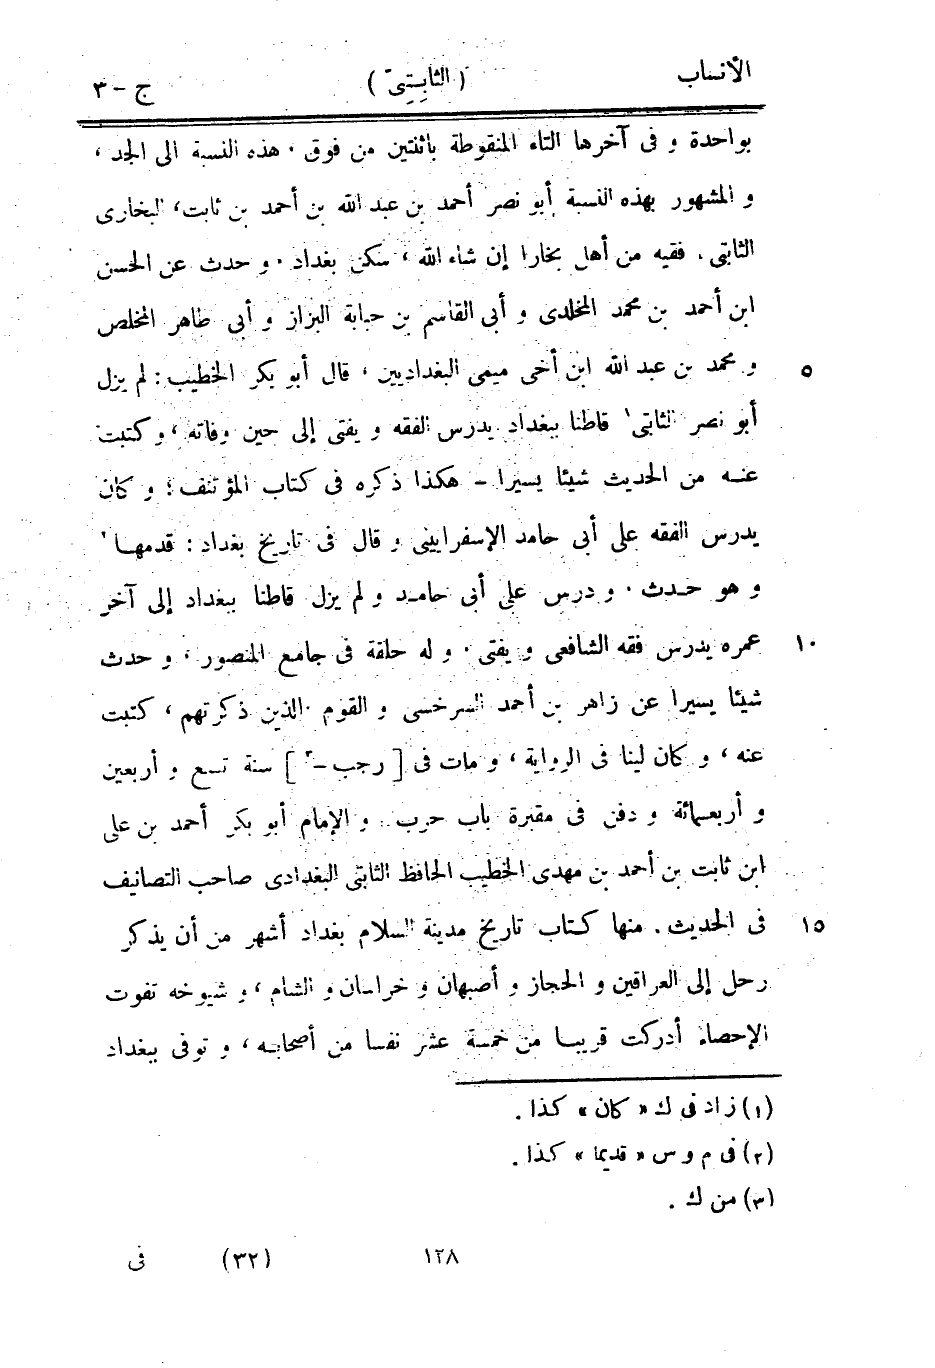 الأنساب ( الثابِتِيّ ) ج - ٣
بواحدة و فى آخرها التاء المنقوطة باثنتين من فوق . هذه النسبة الى الجد ،
و المشهور بهذه النسبة أبو نصر أحمد بن عبد الله بن أحمد بن ثابت ، البخارى
الثابتى . فقيه من أهل بخارا إن شاء الله ، سكن بغداد . و حدث عن الحسن
ابن أحمد بن محمد المخلدى و أبى القاسم بن حبابة البزاز و أبى طاهر المخلص
و محمد بن عبد الله ابن أخى ميمى البغداديين ، قال أبو بكر الخطيب : لم يزل ٥
أبو نصر الثابتى ١ قاطنا ببغداد يدرس الفقه و يفتى إلى حين وفاته ، و كتبت
عنـه من الحديث شيئا يسيرا - هكذا ذكره فى كتاب المؤتنف ؛ و كان
يدرس الفقه على أبى حامد الإسفرايينى و قال فى تاريخ بغداد : قدمهـا ٢
و هو حـدث . و درس على أبى حامـد و لم يزل قاطنا ببغداد إلى آخر
عمره يدرس فقه الشافعى و يفتى . و له حلقة فى جامع المنصور ، و حدث ١٠
شيئا يسيرا عن زاهر بن أحمد السرخسى و القوم الذين ذكرتهم ، كتبت
عنه ، و كان لينا فى الرواية ، و مات فى [ رجب - ٣ ] سنة تسع و أربعين
و أربعـمائة و دفن فى مقبرة باب حرب . و الإمام أبو بكر أحمد بن على
ابن ثابت بن أحمد بن مهدى الخطيب الحافظ الثابتى البغدادى صاحب التصانيف
فى الحديث . منها كـتاب تاريخ مدينة السلام بغداد أشهر من أن يذكر ١٥
رحل إلى العراقين و الحجاز و أصبهان و خراسان و الشام ، و شيوخه تفوت
الإحصاء أدركت قريبـا من خمسة عشر نفسا من أصحابـه ، و توفى ببغداد
(١) زاد فى ك « كان » كذا .
(٢) فى م و س « قديما » كذا .
(٣) من ك .
١٢٨ (٣٢) فى